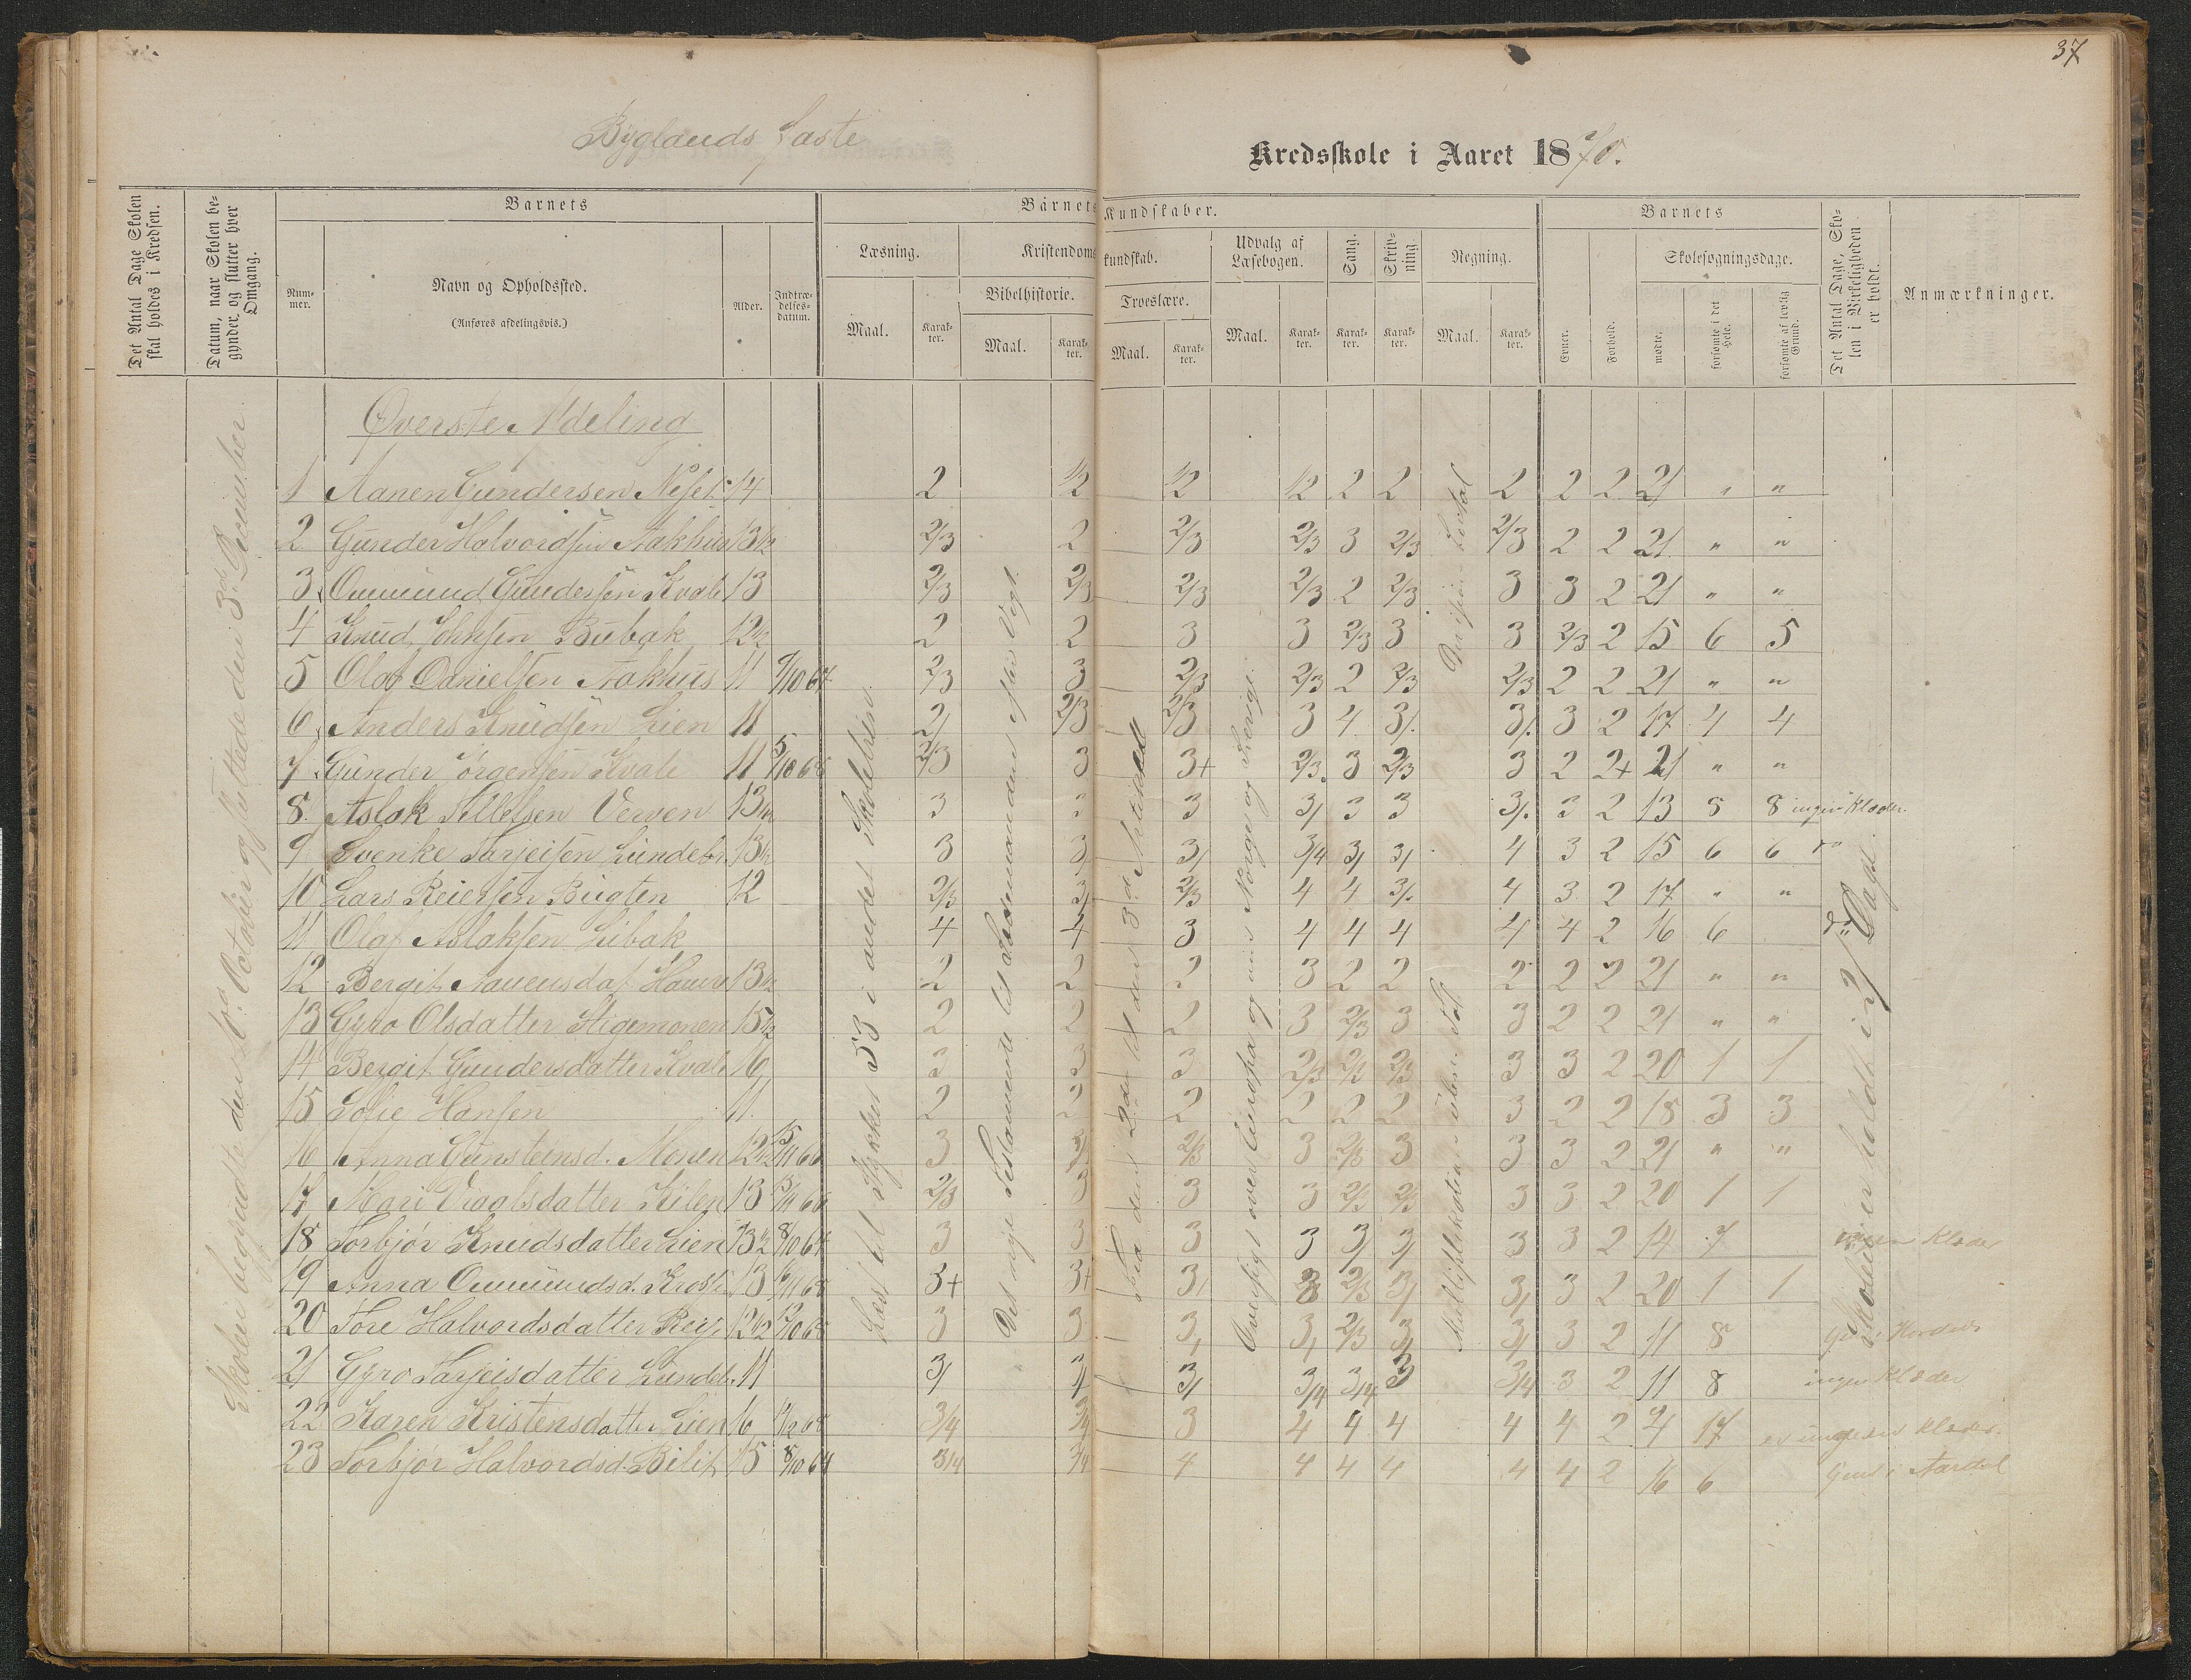 37
Byglands faste
Kredsskole i Aaret 1870.
Det Antal Dage Skolen skal holdes i Kredsen.
Datum, naar Skolen begynder og slutter hver Omgang.
Barnets
Barnets Kundskaber.
Barnets
Det Antal Dage, Skolen i Virkeligheden er holdt.
Anmærkninger.
Nummer.
Navn og Opholdssted.
(Anføres afdelingsvis.)
Alder.
Indtrædelsesdatum.
Læsning.
Kristendomskundskab.
Udvalg af Læsebogen.
Sang.
Skrivning.
Regning.
Skolesøgningsdage.
Bibelhistorie.
Troeslære.
Maal.
Karakter.
Maal.
Karakter.
Maal.
Karakter.
Maal.
Karakter.
Karakter.
Karakter.
Maal.
Karakter.
Evner.
Forhold.
mødte.
forsømte i det Hele.
forsømte af lovlig Grund.
Øverste Afdeling
1 Aanen Gundersen Neset 14 2 1/2 1/2 1/2 2 2 2 2 2 21 " "
2 Gunder Halvordsen Aakhus 13 1/2 2/3 2 2/3 2/3 3 2/3 2/3 2 2 21 " "
3 Ommund Gundersen Kvale 13 2/3 2/3 2/3 2/3 2 2/3 3 3 2 21 " "
4 Knud Johnsen Bubak 12 1/2 2 2 3 3 2/3 3 3 2/3 2 15 6 5
5 Olaf Danielsen Aakhus 11 9/10 67 2/3 3 2/3 2/3 2 2/3 2/3 2 2 21 " "
6 Anders Knudsen Lien 11 2/ 2/3 2/3 3 4 3/. 3/. 3 2 17 4 4
7 Gunder Jørgensen Kvale 11 5/10 68 2/3 3 3+ 2/3 3 2/3 3 2 2+ 21 " "
8 Aslak Tellefsen Verven 13 1/2 3 3 3 3/ 3 3 3/. 3 2 13 8 8 ingen Klæder.
9 Svenke Tarjeisen Lundeb. 13 1/2 3 3/ 3/ 3/4 3/ 3/ 4 3 2 15 6 6 do
10 Lars Reiersen Bugten 12 2/3 3/ 2/3 4 4 3/. 4 3 2 17 " "
11 Olaf Aslaksen Libak 4 4 3 4 4 4 4 4 2 16 6 do
12 Bergit Aanensdat. 13 1/2 2 2 2 3 2 2 2 2 2 21 " "
13 Gyro Olsdatter Stigemonen 15 1/2 2 2 2 3 2/3 3 3 2 2 21 " "
14 Bergit Gundersdatter Kvale 16 3 3 3 2/3 2/3 2/3 3 3 2 20 1 1
15 Solie Hansen 11 2 2 2 2 2 2 3 2 2 18 3 3
16 Anna Gunsteinsd. Monen 12 1/2 15/11 66 3 3/ 2/3 3 2/3 3 3 3 2 21 " "
17 Mari Draalsdatter Kilen 13 15/11 66 2/3 3 3 3 2/3 2/3 3 3 2 20 1 1
18 Torbjør Knudsdatter Lien 13 1/2 8/10 67 3 3 3 3 3/ 3/ 3 3 2 14 7 ingen Klæder
19 Anna Ommundsd. 13 3+ 3+ 3/ 3 2/3 3/ 3/ 3 2 20 1 1
20 Tore Halvordsdatter 12 1/2 12/10 68 3 3 3/ 3/ 2/3 3/ 3/ 3 2 11 8
21 Gyro Tarjeisdatter Lundeb. 11 3/ 3/ 3/ 3/4 3/4 3 3/4 3 2 11 8 ingen Klæder
22 Karen Kristensdatter Lien 16 3/4 3/4 3 4 4 4 4 4 2 4 17 Klæder.
23 Torbjør Halvordsd. 15 8/10 64 3/4 3/4 4 4 4 4 4 4 2 16 6 i Aardal
Skolen begyndte den October og sluttede den 3die December.
Læst til Stykket 53 i andet Skoletrin.
Det nye Testamente til
Fra den 2den til den 3die Artikel
Oversigt over Europa og
Skolen er holdt i 21 Dage.